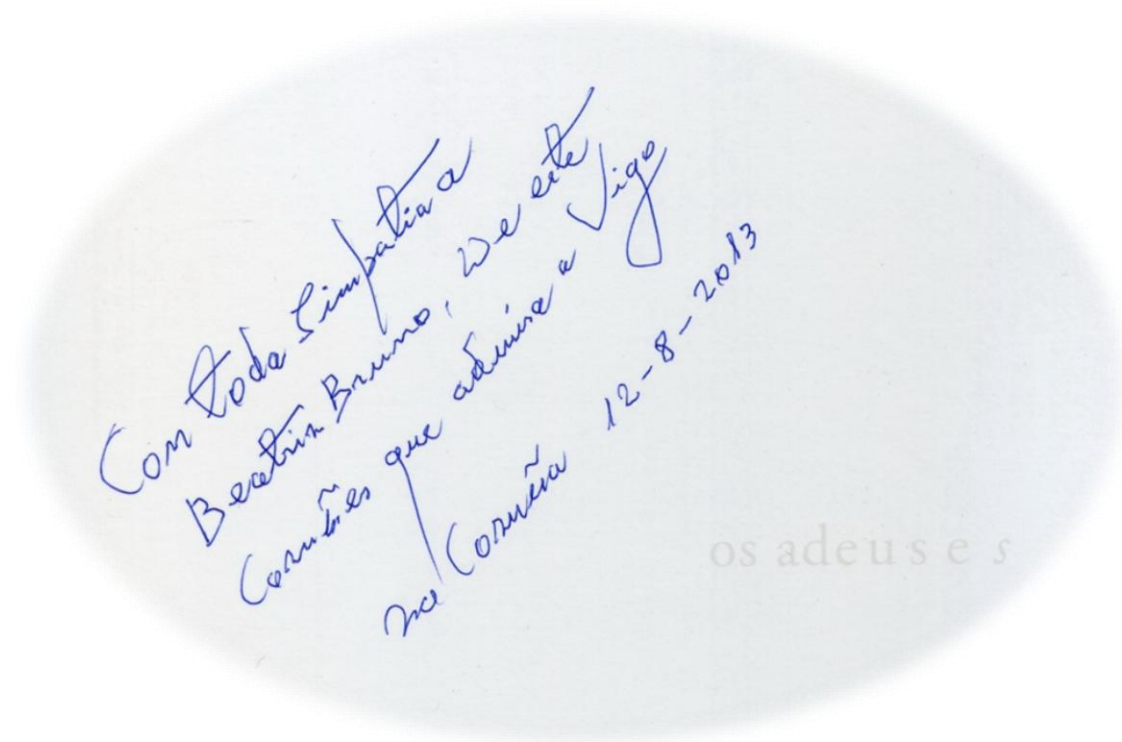 Con toda simpatia a
Beatriz Bruno, de este
Coruñes que admira a Vigo
na Coruña 12-8-2013
os adeuses